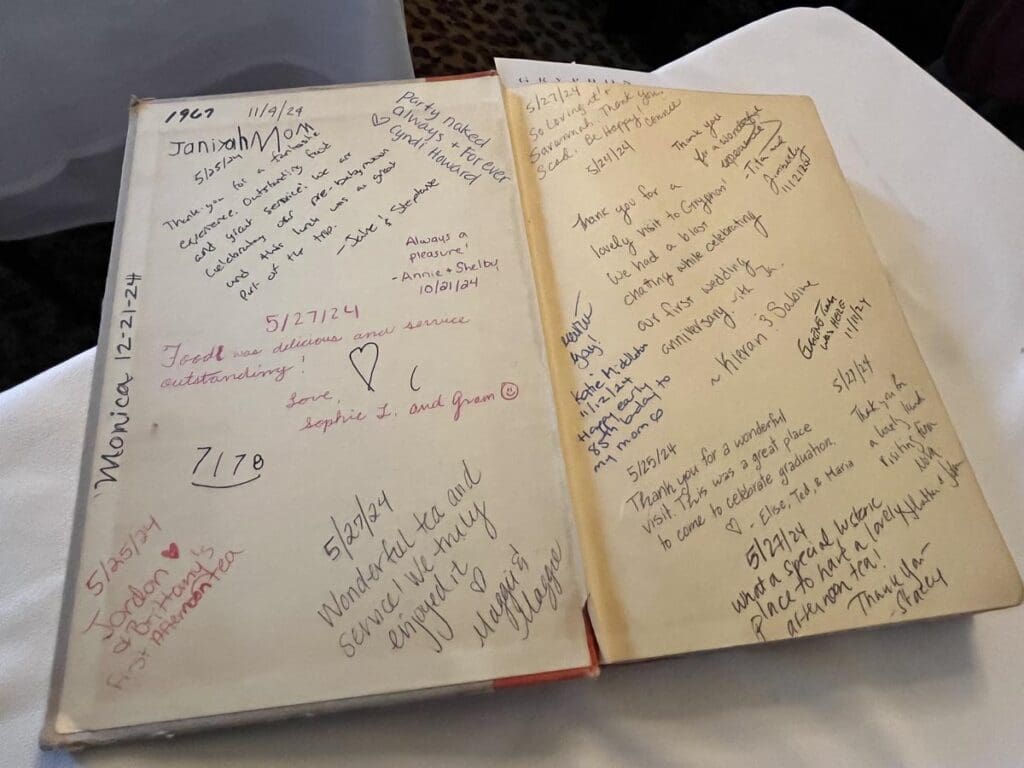 1967 11/9/24
Janiyah Mom
5/25/24
Thank you for a fantastic
experience. Outstanding food
and great service! We are
celebrating our pre-babymoon
and this lunch was a great
part of the trip.
- Jake & Stephanie
Party naked
always + Forever
♡ Cyndi Howard
Always a
pleasure!
- Annie + Shelby
10/21/24
Monica 12-21-24
5/27/24
Food was delicious and service
outstanding!
Love,
Sophie L. and Gram
7178
5/25/24
Jordan ♥
& Brittany's
First Afternoon tea
5/27/24
Wonderful tea and
service! We truly
enjoyed it
♡
Maggie &
Maggie
GRYPHON
5/27/24
So Loving it!
Savannah. Thank you.
Scad. Be Happy!
Connie
5/24/24
Thank you
for a wonderful
experience
- Tita and
Kimberly
Thank you for a
lovely visit to Gryphon!
We had a blast
chatting while celebrating
our first wedding
anniversary with
~ Kieran & Sabine
was HERE
11/11/24
Katie
11/21/24
Happy early
85th bday to
my mom
5/25/24
Thank you for a wonderful
visit. This was a great place
to come to celebrate graduation.
♡ - Elise, Ted, & Maria
5/27/24
Thank you for
a lovely lunch
visiting from
5/27/24
What a special historic
place to have a lovely
afternoon tea!
Thank you -
- Stacey